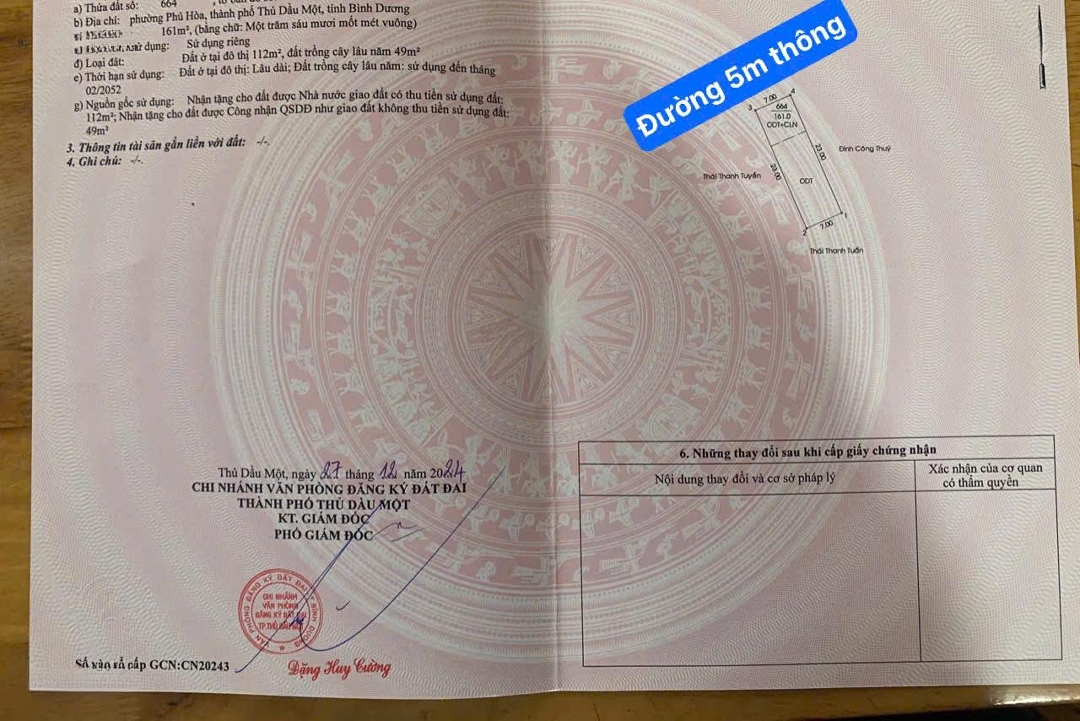 a) Thửa đất số: 664
b) Địa chỉ: phường Phú Hòa, thành phố Thủ Dầu Một, tỉnh Bình Dương
161m², (bằng chữ: Một trăm sáu mươi mốt mét vuông)
sử dụng: Sử dụng riêng
đ) Loại đất: Đất ở tại đô thị 112m², đất trồng cây lâu năm 49m²
e) Thời hạn sử dụng: Đất ở tại đô thị: Lâu dài; Đất trồng cây lâu năm: sử dụng đến tháng
02/2052
g) Nguồn gốc sử dụng: Nhận tặng cho đất được Nhà nước giao đất có thu tiền sử dụng đất:
112m²; Nhận tặng cho đất được Công nhận QSDĐ như giao đất không thu tiền sử dụng đất:
49m²
3. Thông tin tài sản gắn liền với đất: -/-.
4. Ghi chú: -/-.
Thủ Dầu Một, ngày 27 tháng 12 năm 2024
CHI NHÁNH VĂN PHÒNG ĐĂNG KÝ ĐẤT ĐAI
THÀNH PHỐ THỦ DẦU MỘT
KT. GIÁM ĐỐC
PHÓ GIÁM ĐỐC
VĂN PHÒNG ĐĂNG KÝ ĐẤT ĐAI BÌNH DƯƠNG
CHI NHÁNH
VĂN PHÒNG
ĐĂNG KÝ ĐẤT ĐAI
TP.THỦ DẦU MỘT
Đặng Huy Cường
Số vào sổ cấp GCN:CN20243
Đường 5m thông
3
7.00
4
664
161.0
ODT+CLN
23.00
Đinh Công Thuý
Thái Thanh Tuyền
23.00
ODT
1
2
7.00
Thái Thanh Tuấn
6. Những thay đổi sau khi cấp giấy chứng nhận
Nội dung thay đổi và cơ sở pháp lý
Xác nhận của cơ quan
có thẩm quyền